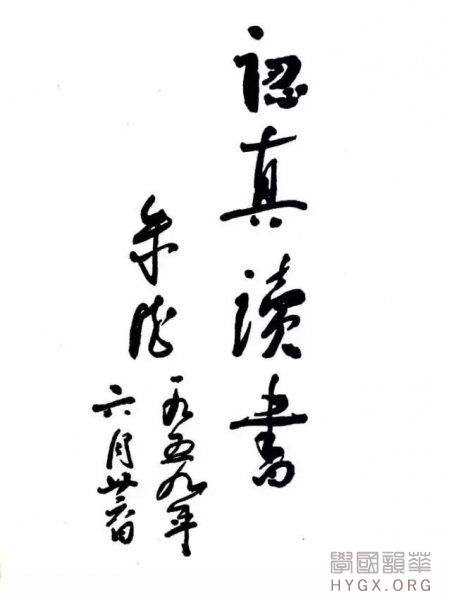 認真讀書
朱德
一九五九年
六月廿六日
華韻國學
HYGX.ORG